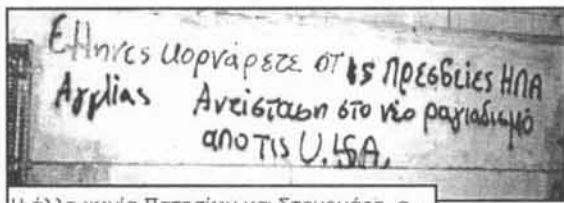 Έλληνες κορνάρετε στις πρεσβείες ΗΠΑ
Αγγλίας Αντίσταση στο νέο ραγιαδισμό
απο τις U.S.A.
Η άλλη γωνία Πατησίων και Στουρνάρη, σ